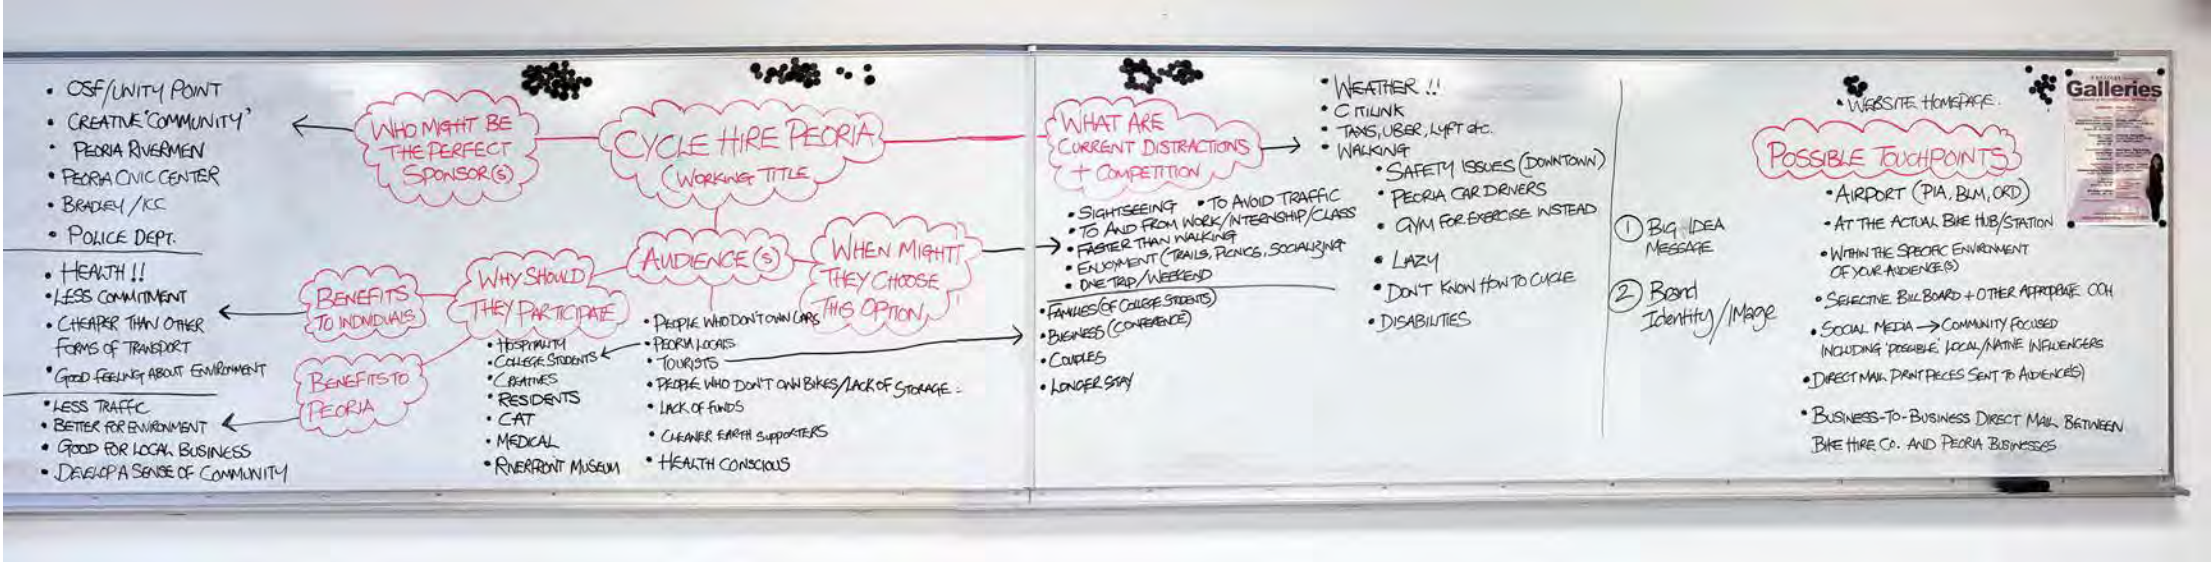 • OSF/UNITY POINT
• CREATIVE 'COMMUNITY'
• PEORIA RIVERMEN
• PEORIA CIVIC CENTER
• BRADLEY/ICC
• POLICE DEPT.
• HEALTH !!
• LESS COMMITMENT
• CHEAPER THAN OTHER
FORMS OF TRANSPORT
• GOOD FEELING ABOUT ENVIRONMENT
• LESS TRAFFIC
• BETTER FOR ENVIRONMENT
• GOOD FOR LOCAL BUSINESS
• DEVELOP A SENSE OF COMMUNITY
WHO MIGHT BE
THE PERFECT
SPONSOR(S)
BENEFITS
TO INDIVIDUALS
BENEFITS TO
PEORIA
CYCLE HIRE PEORIA
(WORKING TITLE)
WHY SHOULD
THEY PARTICIPATE
AUDIENCE(S)
WHEN MIGHT
THEY CHOOSE
THIS OPTION
• HOSPITALITY
• COLLEGE STUDENTS
• CREATIVES
• RESIDENTS
• CAT
• MEDICAL
• RIVERFRONT MUSEUM
• PEOPLE WHO DON'T OWN CARS
• PEORIA LOCALS
• TOURISTS
• PEOPLE WHO DON'T OWN BIKES/LACK OF STORAGE
• LACK OF FUNDS
• CLEANER EARTH SUPPORTERS
• HEALTH CONSCIOUS
WHAT ARE
CURRENT DISTRACTIONS
+ COMPETITION
• SIGHTSEEING • TO AVOID TRAFFIC
• TO AND FROM WORK/INTERNSHIP/CLASS
• FASTER THAN WALKING
• ENJOYMENT (TRAILS, PICNICS, SOCIALIZING
• ONE TRIP/WEEKEND
• FAMILIES (OF COLLEGE STUDENTS)
• BUSINESS (CONFERENCE)
• COUPLES
• LONGER STAY
• WEATHER !!
• CITILINK
• TAXIS, UBER, LYFT etc.
• WALKING
• SAFETY ISSUES (DOWNTOWN)
• PEORIA CAR DRIVERS
• GYM FOR EXERCISE INSTEAD
• LAZY
• DON'T KNOW HOW TO CYCLE
• DISABILITIES
① BIG IDEA
MESSAGE
② Brand
Identity/Image
• WEBSITE HOMEPAGE.
POSSIBLE TOUCHPOINTS
• AIRPORT (PIA, BLM, ORD)
• AT THE ACTUAL BIKE HUB/STATION
• WITHIN THE SPECIFIC ENVIRONMENT
OF YOUR AUDIENCE(S)
• SELECTIVE BILLBOARD + OTHER APPROPRIATE OOH
• SOCIAL MEDIA → COMMUNITY FOCUSED
INCLUDING 'POSSIBLE' LOCAL/NATIVE INFLUENCERS
• DIRECT MAIL PRINT PIECES SENT TO AUDIENCE(S)
• BUSINESS-TO-BUSINESS DIRECT MAIL BETWEEN
BIKE HIRE CO. AND PEORIA BUSINESSES
Galleries